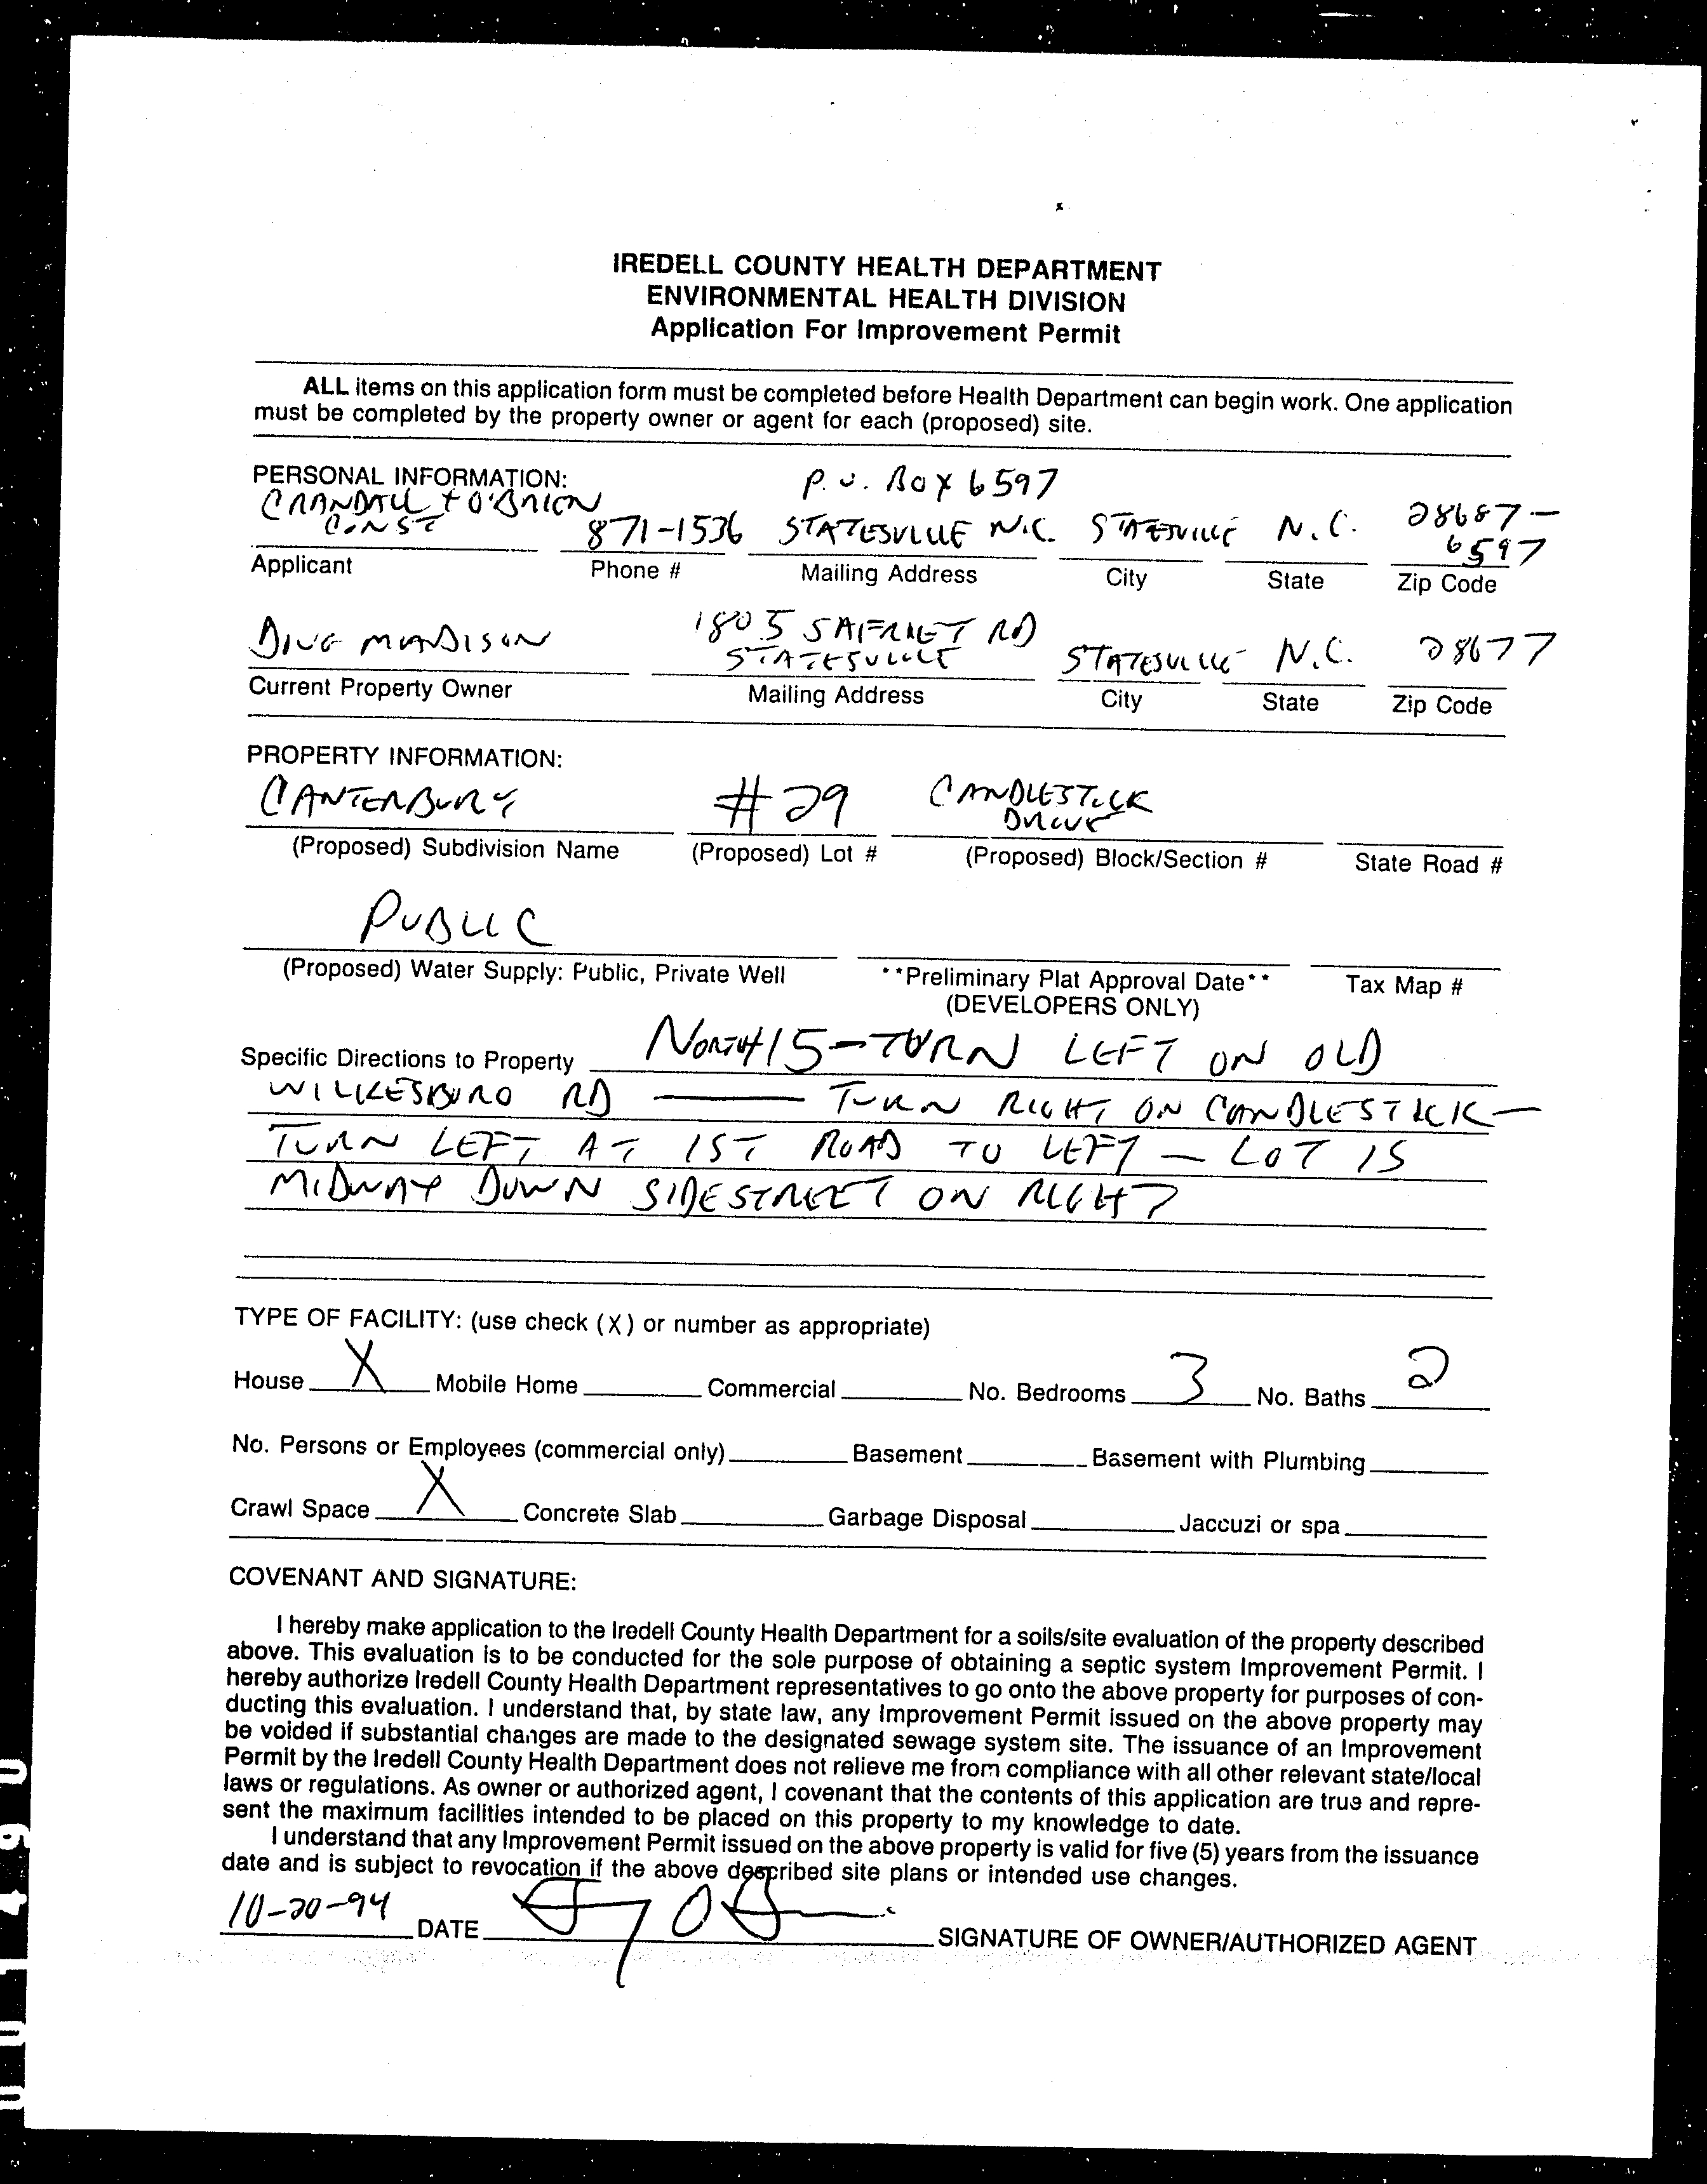 IREDELL COUNTY HEALTH DEPARTMENT
ENVIRONMENTAL HEALTH DIVISION
Application For Improvement Permit
ALL items on this application form must be completed before Health Department can begin work. One application
must be completed by the property owner or agent for each (proposed) site.
PERSONAL INFORMATION: P.O. BOX 6597
CRANDALL + O'BRIEN
CONST 871-1536 STATESVILLE N.C. STATESVILLE N.C. 28687-
6597
Applicant Phone # Mailing Address City State Zip Code
1805 RD
DOUG MADISON STATESVILLE STATESVILLE N.C. 28677
Current Property Owner Mailing Address City State Zip Code
PROPERTY INFORMATION:
CANTERBURY #29 CANDLESTICK
DRIVE
(Proposed) Subdivision Name (Proposed) Lot # (Proposed) Block/Section # State Road #
PUBLIC
(Proposed) Water Supply: Public, Private Well **Preliminary Plat Approval Date** Tax Map #
(DEVELOPERS ONLY)
Specific Directions to Property NORTH 15 - TURN LEFT ON OLD
WILKESBORO RD — TURN RIGHT ON CANDLESTICK -
TURN LEFT AT 1ST ROAD TO LEFT - LOT IS
MIDWAY DOWN SIDESTREET ON RIGHT
TYPE OF FACILITY: (use check (X) or number as appropriate)
House X Mobile Home Commercial No. Bedrooms 3 No. Baths 2
No. Persons or Employees (commercial only) Basement Basement with Plumbing
Crawl Space X Concrete Slab Garbage Disposal Jaccuzi or spa
COVENANT AND SIGNATURE:
I hereby make application to the Iredell County Health Department for a soils/site evaluation of the property described
above. This evaluation is to be conducted for the sole purpose of obtaining a septic system Improvement Permit. I
hereby authorize Iredell County Health Department representatives to go onto the above property for purposes of con-
ducting this evaluation. I understand that, by state law, any Improvement Permit issued on the above property may
be voided if substantial changes are made to the designated sewage system site. The issuance of an Improvement
Permit by the Iredell County Health Department does not relieve me from compliance with all other relevant state/local
laws or regulations. As owner or authorized agent, I covenant that the contents of this application are true and repre-
sent the maximum facilities intended to be placed on this property to my knowledge to date.
I understand that any Improvement Permit issued on the above property is valid for five (5) years from the issuance
date and is subject to revocation if the above described site plans or intended use changes.
10-20-94 DATE SIGNATURE OF OWNER/AUTHORIZED AGENT